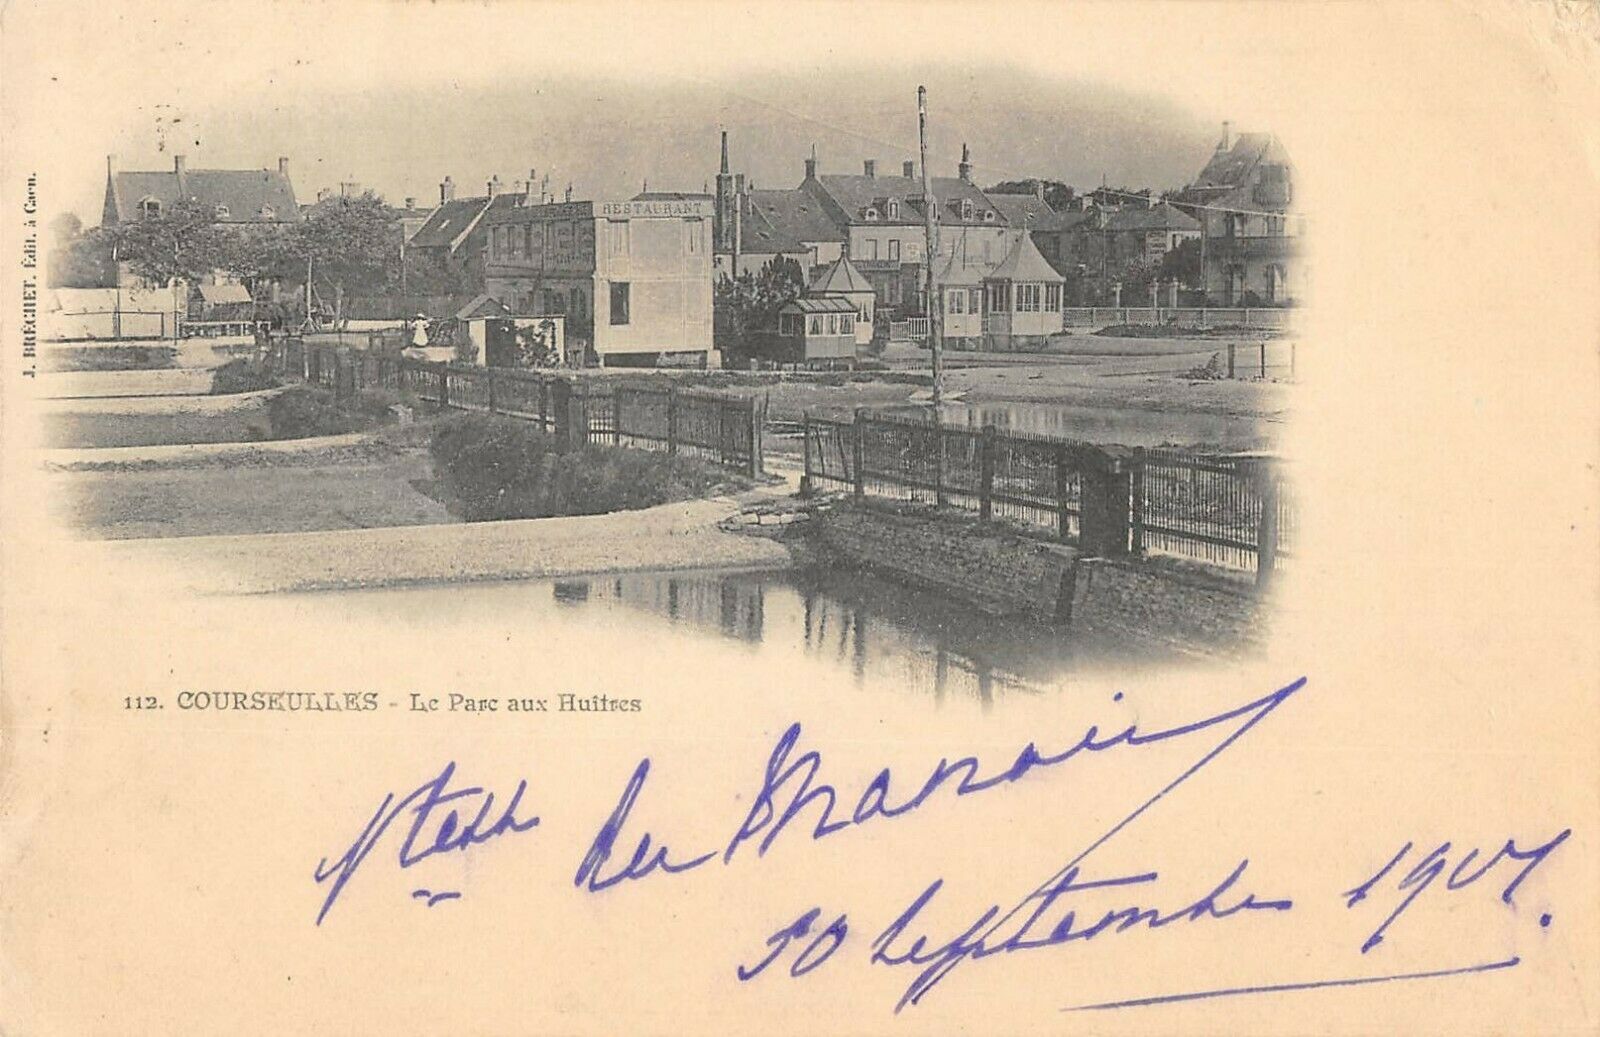 J. BRÉCHET, Édit. à Caen.
RESTAURANT
112. COURSEULLES - Le Parc aux Huîtres
du Manoir
septembre 190